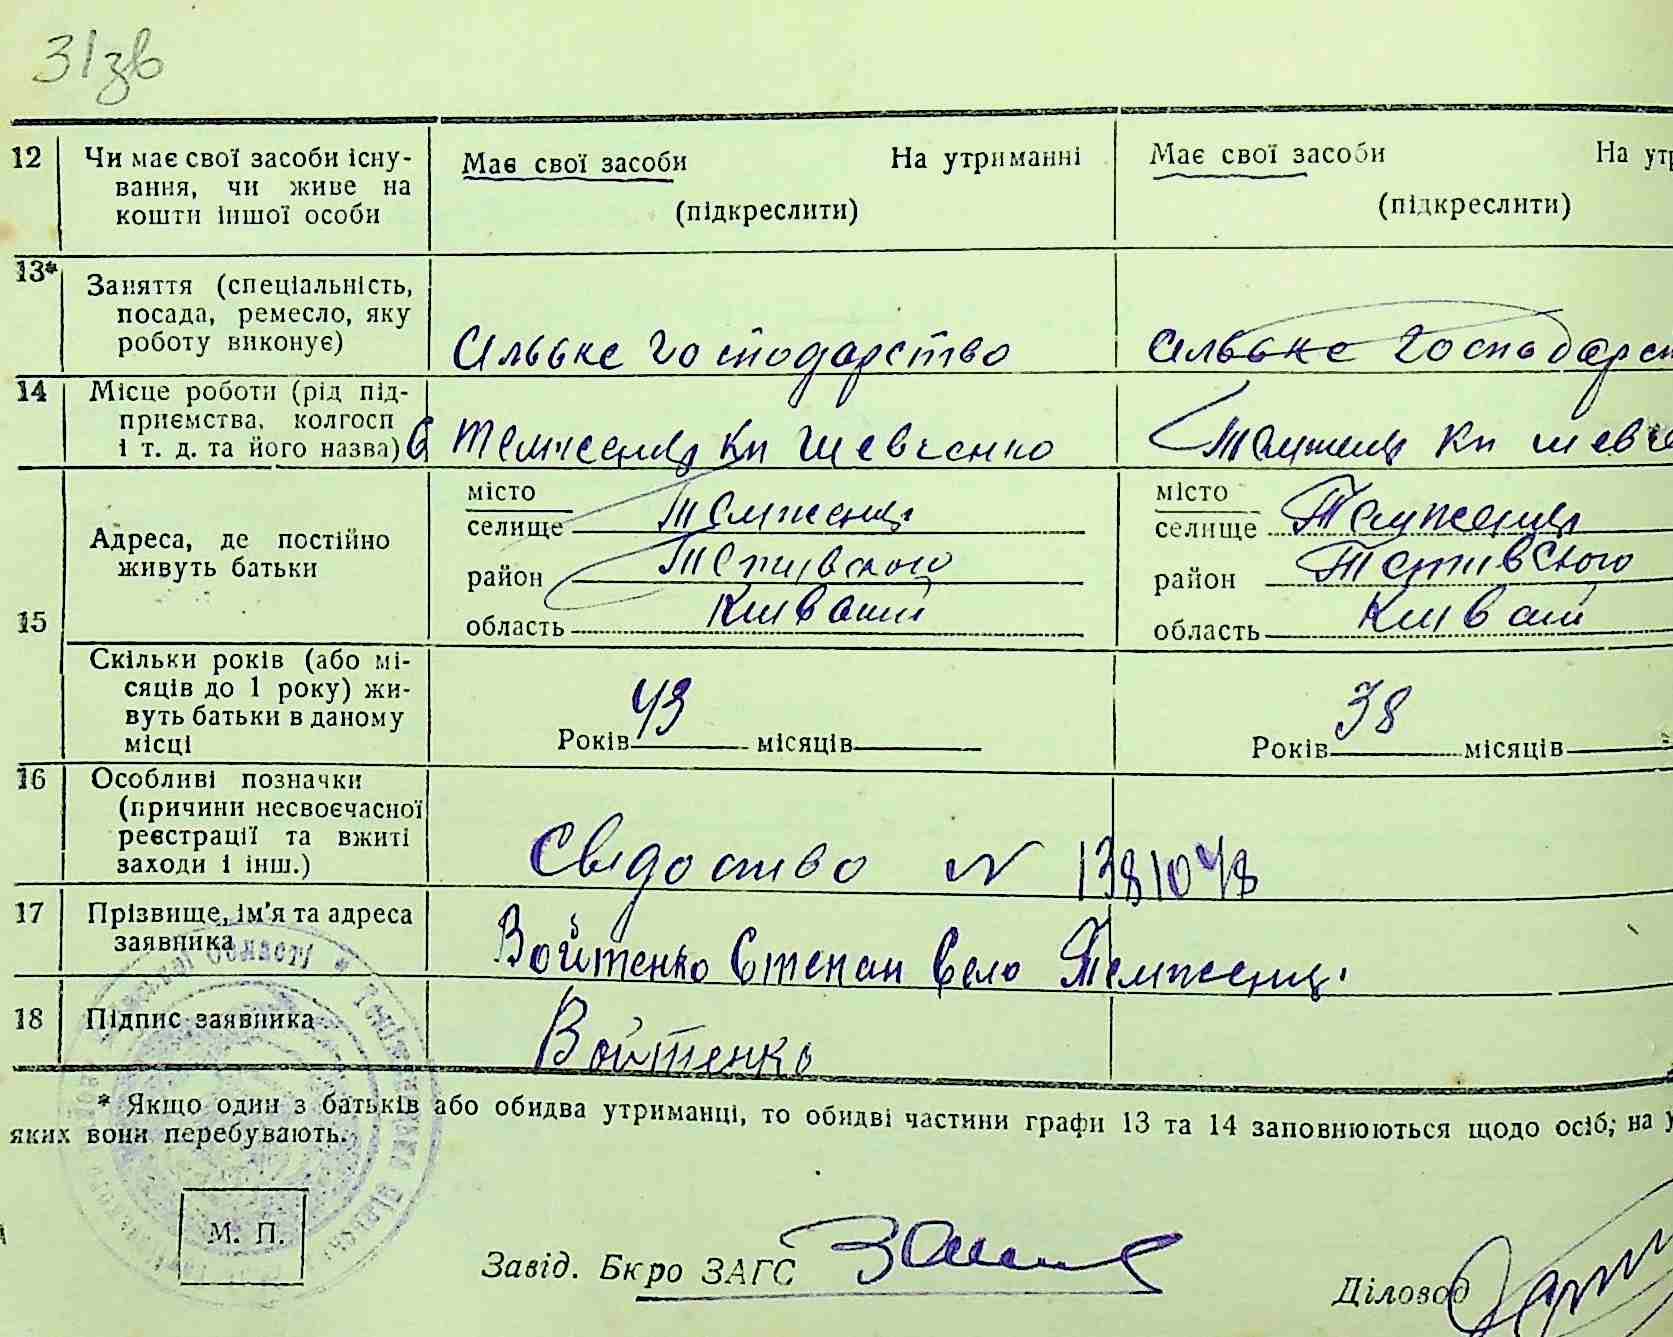 31зв
12 Чи має свої засоби існу- Має свої засоби На утриманні Має свої засоби На утр
вання, чи живе на
кошти іншої особи (підкреслити) (підкреслити)
13* Заняття (спеціальність,
посада, ремесло, яку
роботу виконує) Сільське господарство Сільське господарст
14 Місце роботи (рід під-
приємства, колгосп
і т. д. та його назва) с Темженці Кп Шевченко Темженці Кп Шевче
15 Адреса, де постійно
живуть батьки
місто місто
селище Темженці селище Темженці
район Тетіївского район Тетіївского
область Київськ область Київськ
Скільки років (або мі-
сяців до 1 року) жи-
вуть батьки в даному
місці Років 43 місяців Років 38 місяців
16 Особливі позначки
(причини несвоєчасної
реєстрації та вжиті
заходи і інш.) Свідоство N 1381048
17 Прізвище, ім'я та адреса
заявника Войтенко Степан село Темженці
18 Підпис заявника Войтенко
* Якщо один з батьків або обидва утриманці, то обидві частини графи 13 та 14 заповнюються щодо осіб, на у
яких вони перебувають.
М. П.
Завід. Бюро ЗАГС
Діловод